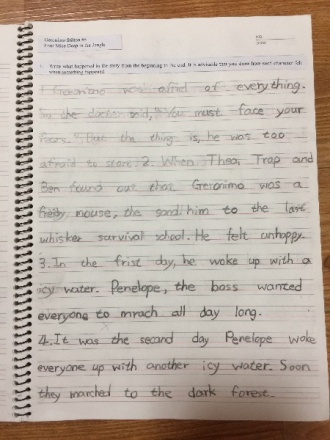 Geronimo Stilton #4
Four Mice Deep in the Jungle
Write what happened in the story from the beginning to the end. It is advisable that you show how each character felt
when something happened.
1. Geronimo was afraid of everything.
So the doctor said, "You must face your
fears." But the thing is, he was too
afraid to start. 2. When Thea, Trap and
Ben found out that Geronimo was a
mouse, the sand him to the last
whisker survival school. He felt unhappy.
3. In the frist day, he woke up with a
icy water. Penelope, the boss wanted
everyone to mrach all day long.
4. It was the second day Penelope woke
everyone up with another icy water. Soon
they marched to the dark forest.